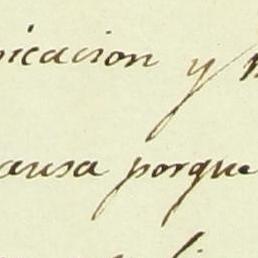 icacion y
ausa porque